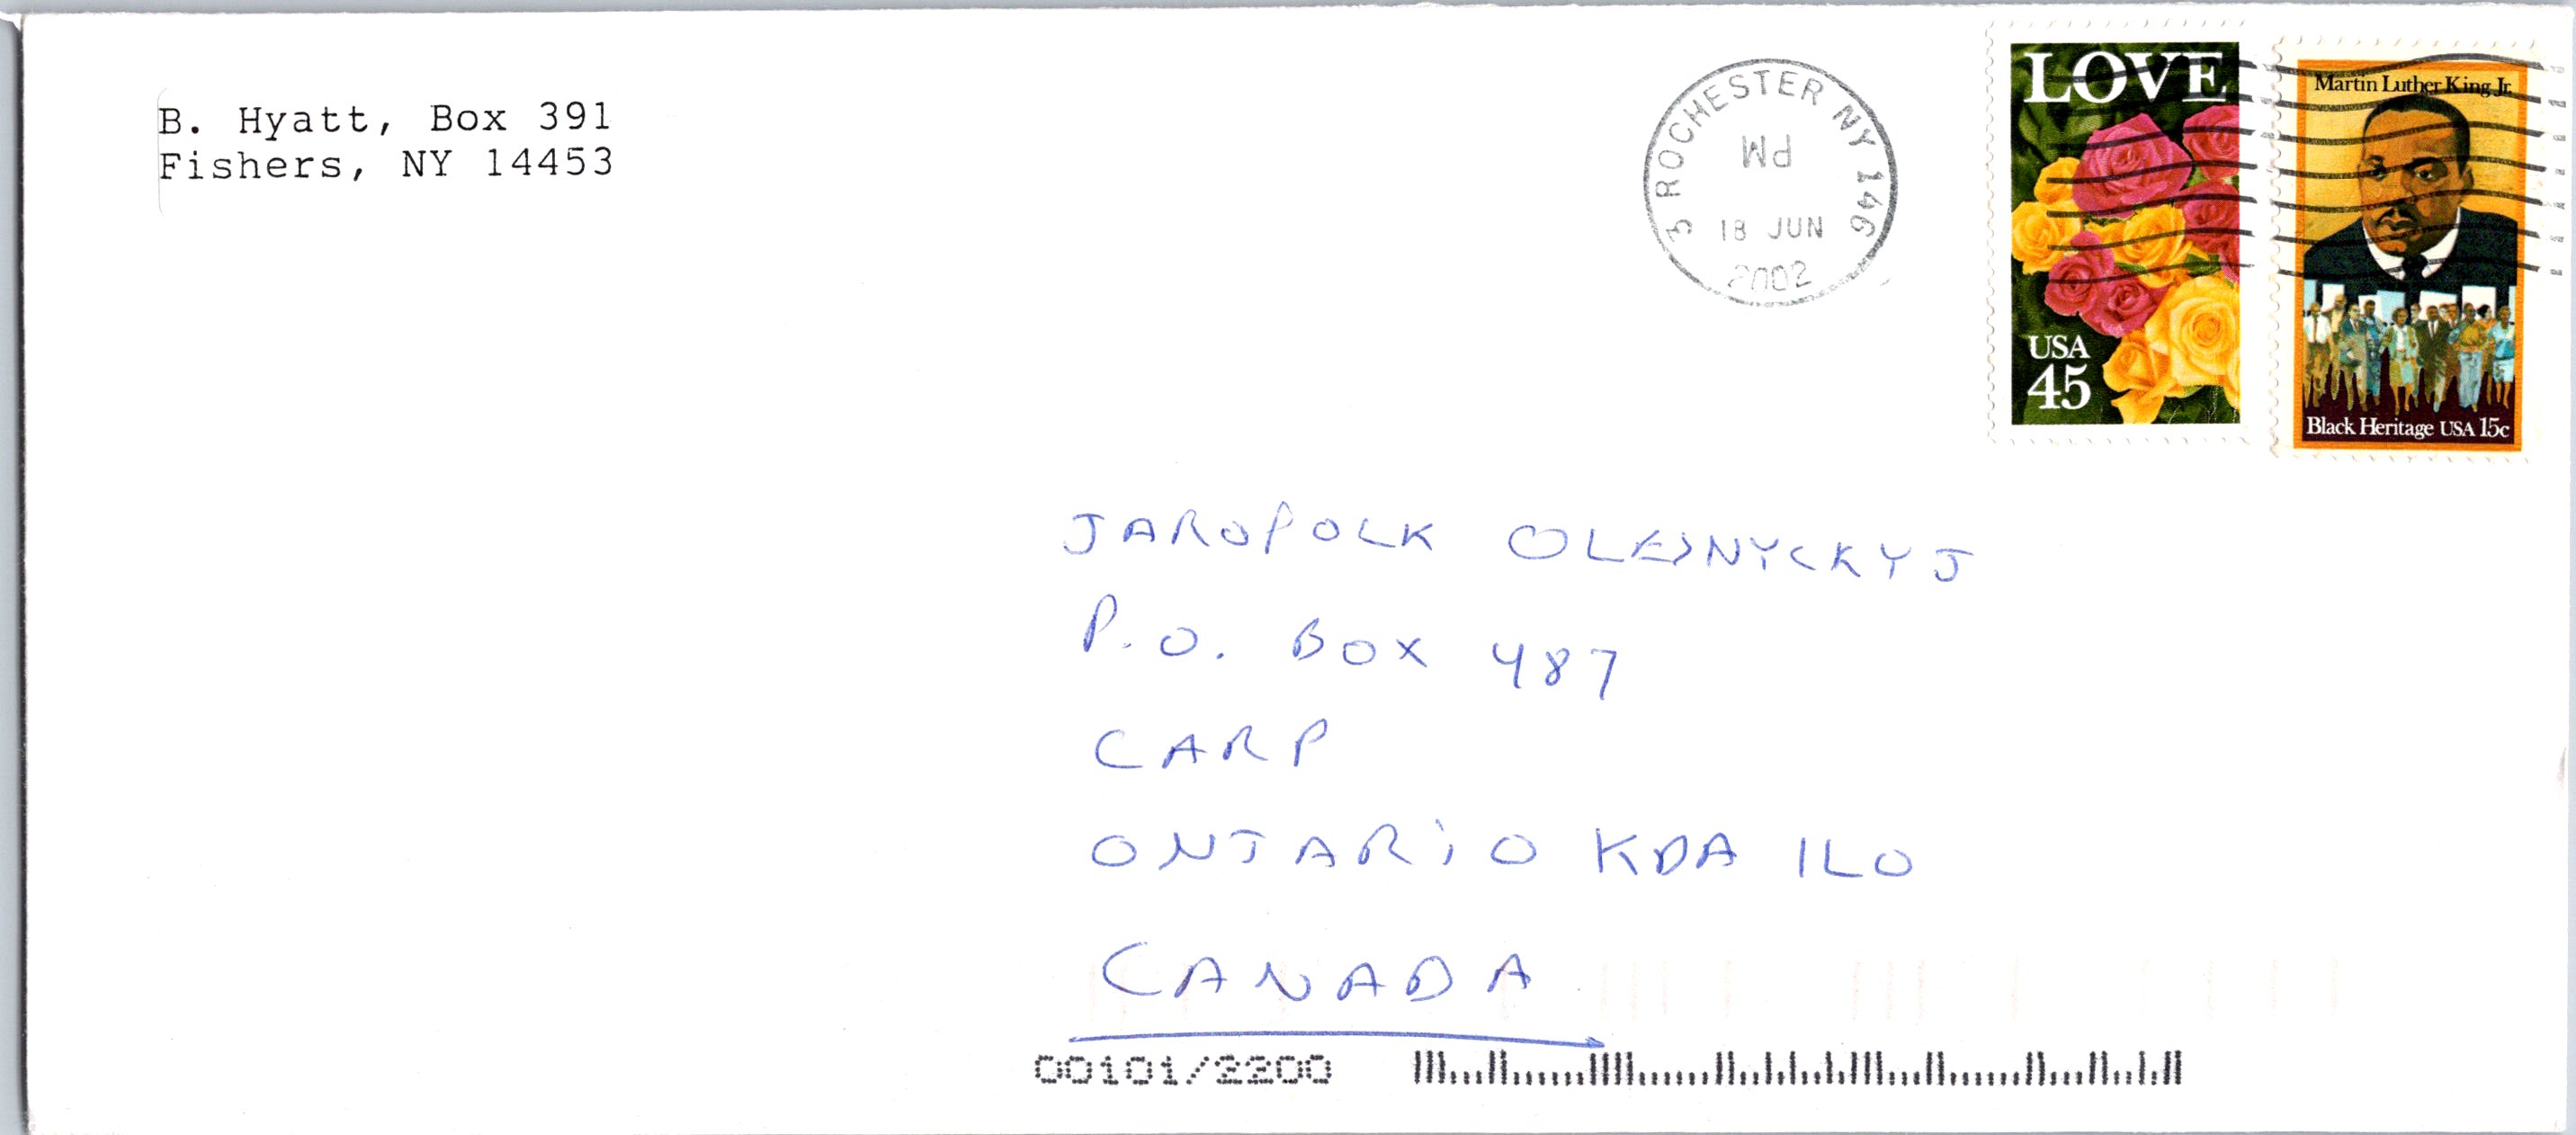 B. Hyatt, Box 391
Fishers, NY 14453
3 ROCHESTER NY 146
PM
18 JUN
2002
LOVE
USA
45
Martin Luther King Jr.
Black Heritage USA 15c
JAROPOLK OLESNYCKYJ
P.O. BOX 487
CARP
ONTARIO K0A 1L0
CANADA
00101/2200